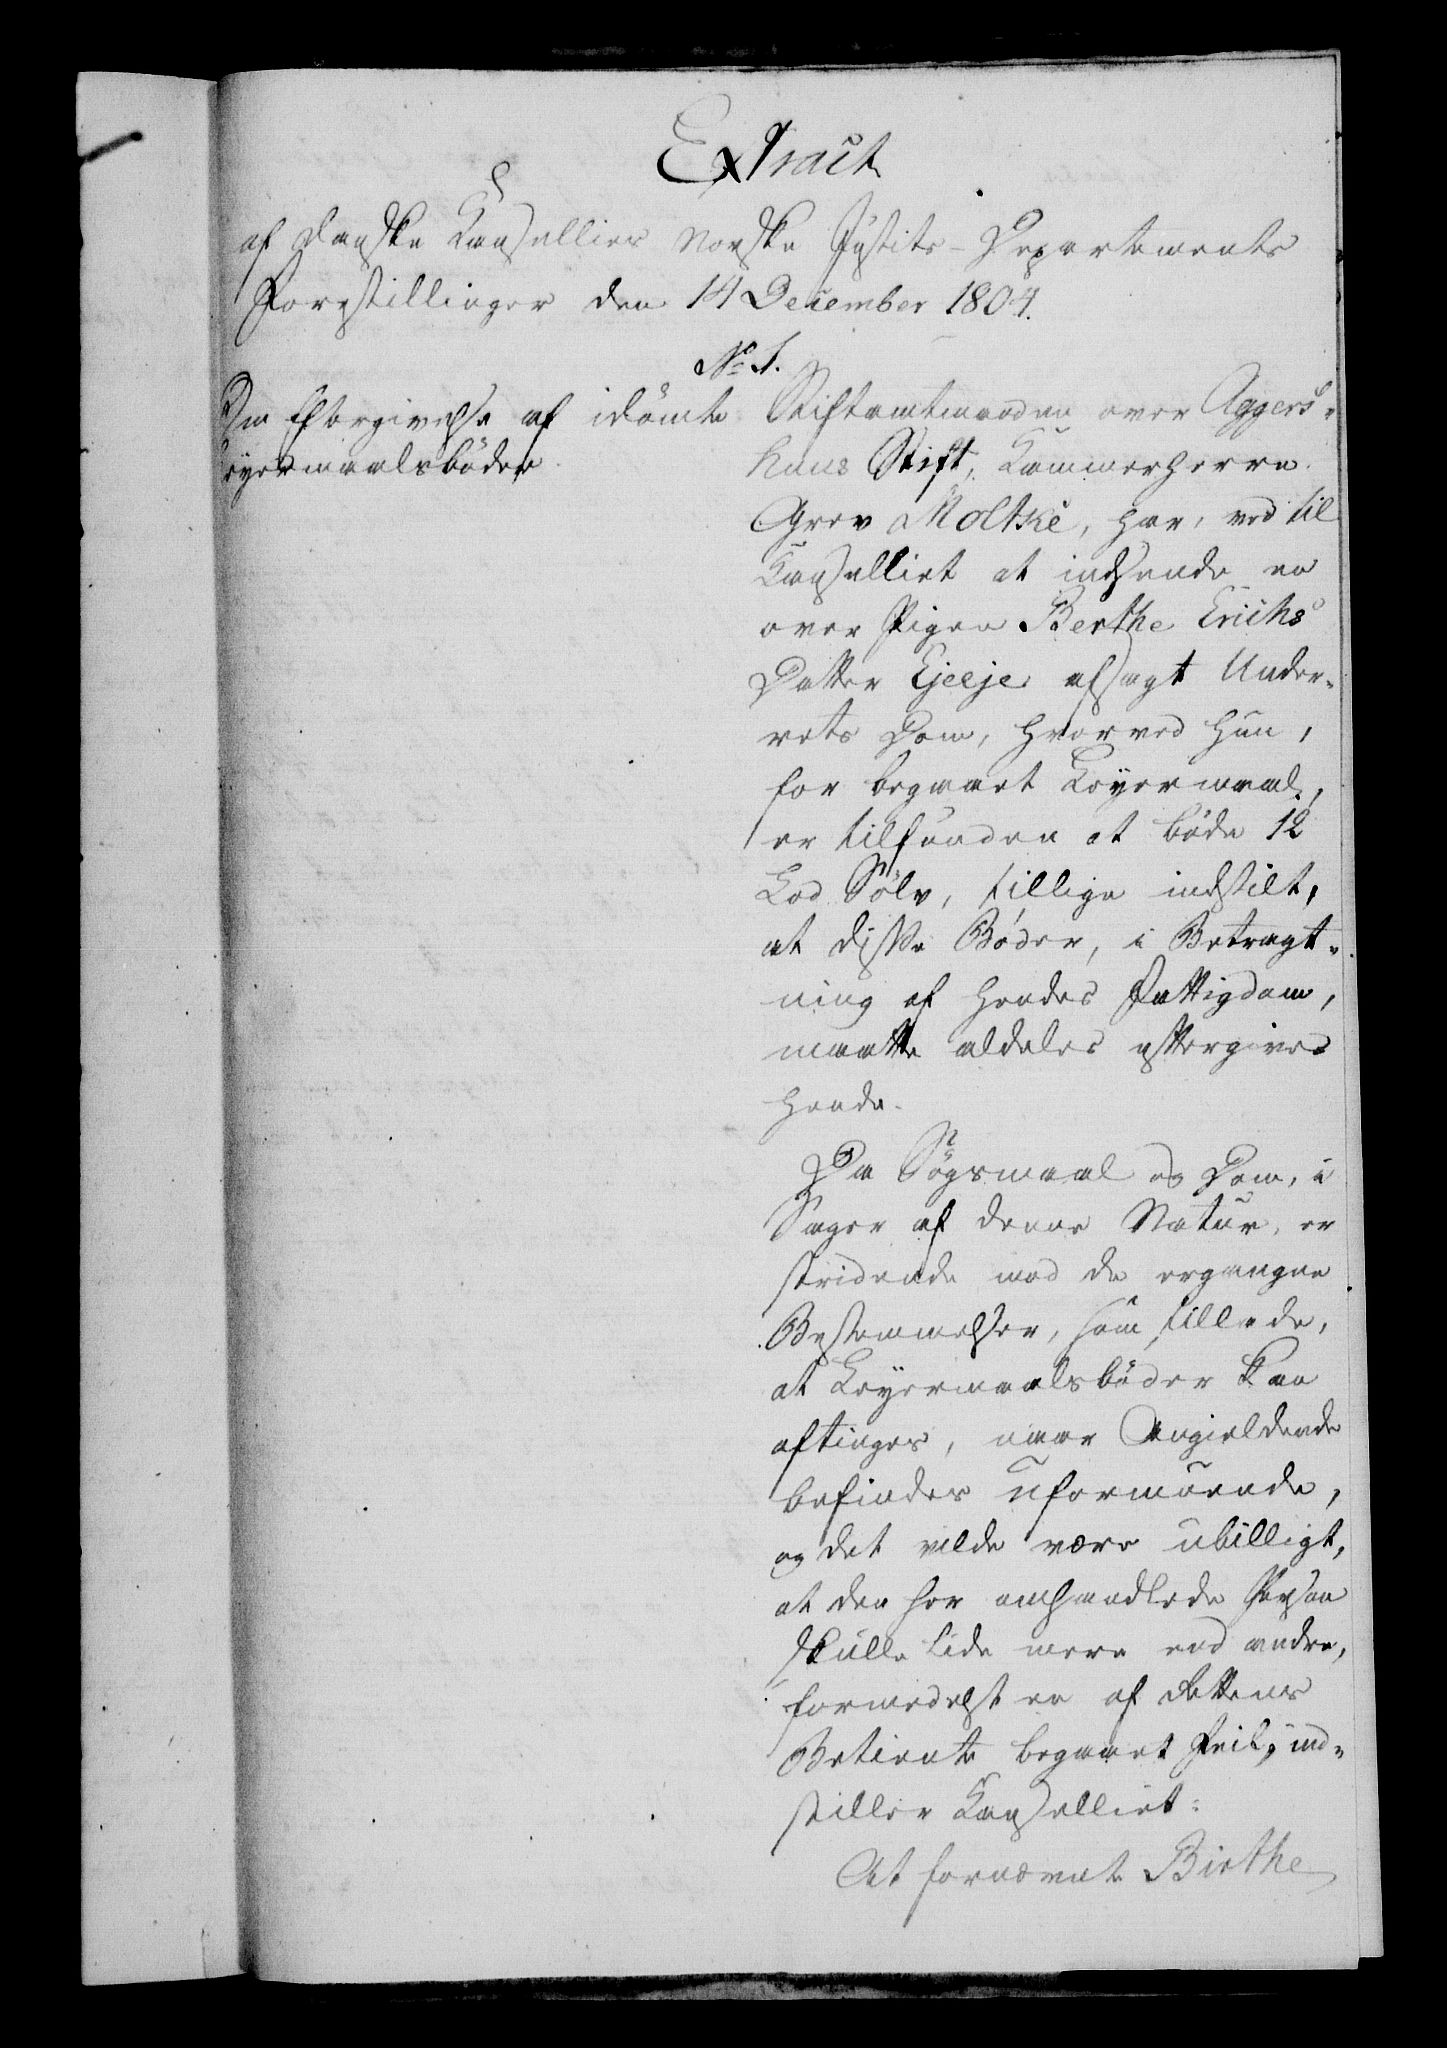 Extract
af danske Kancelliets Norske Justits-Departements
Forestillinger den 14 December 1804.
No 1.
Om Eftergivelse af idømte
Leyermaalsbøder.
Stiftamtmanden over Aggers-
huus Stift, Kammerherre
Grev Moltke, har, ved til
Cancelliet at indsende en
over Pigen Berthe Erichs
Datter Ejeeje afsagt Under-
rets Dom, hvorved hun,
for begaaet Leyermaal,
er tilfunden at bøde 12
Lod Sølv, tillige indstilt,
at disse Bøder, i Betragt-
ning af hendes Fattigdom,
maatte aldeles eftergives
hende.
Da Søgsmaal og Dom, i
Sager af denne Natur, er
stridende mod de ergangne
Bestemmelser, som tillade,
at Leyermaalsbøder kan
aftinges, naar Angieldende
befindes uformuende,
og det vilde være ubilligt,
at den her omhandlede Person
skulle lide mere end andre,
formedelst en af Rettens
Betiente begaaet Feil; ind-
stiller Cancelliet:
At fornævnte Birthe